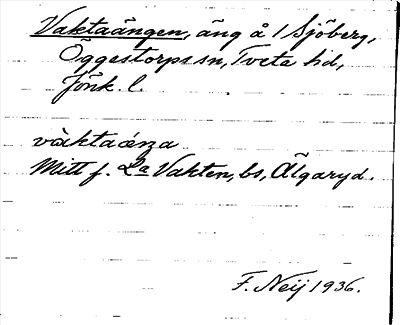 Vaktaängen, äng å 1 Sjöberg,
Öggestorps sn, Tveta hd,
Jönk. l.
vàktaéŋa
Mitt f. La Vakten, bs, Älgaryd.
F. Neij 1936.